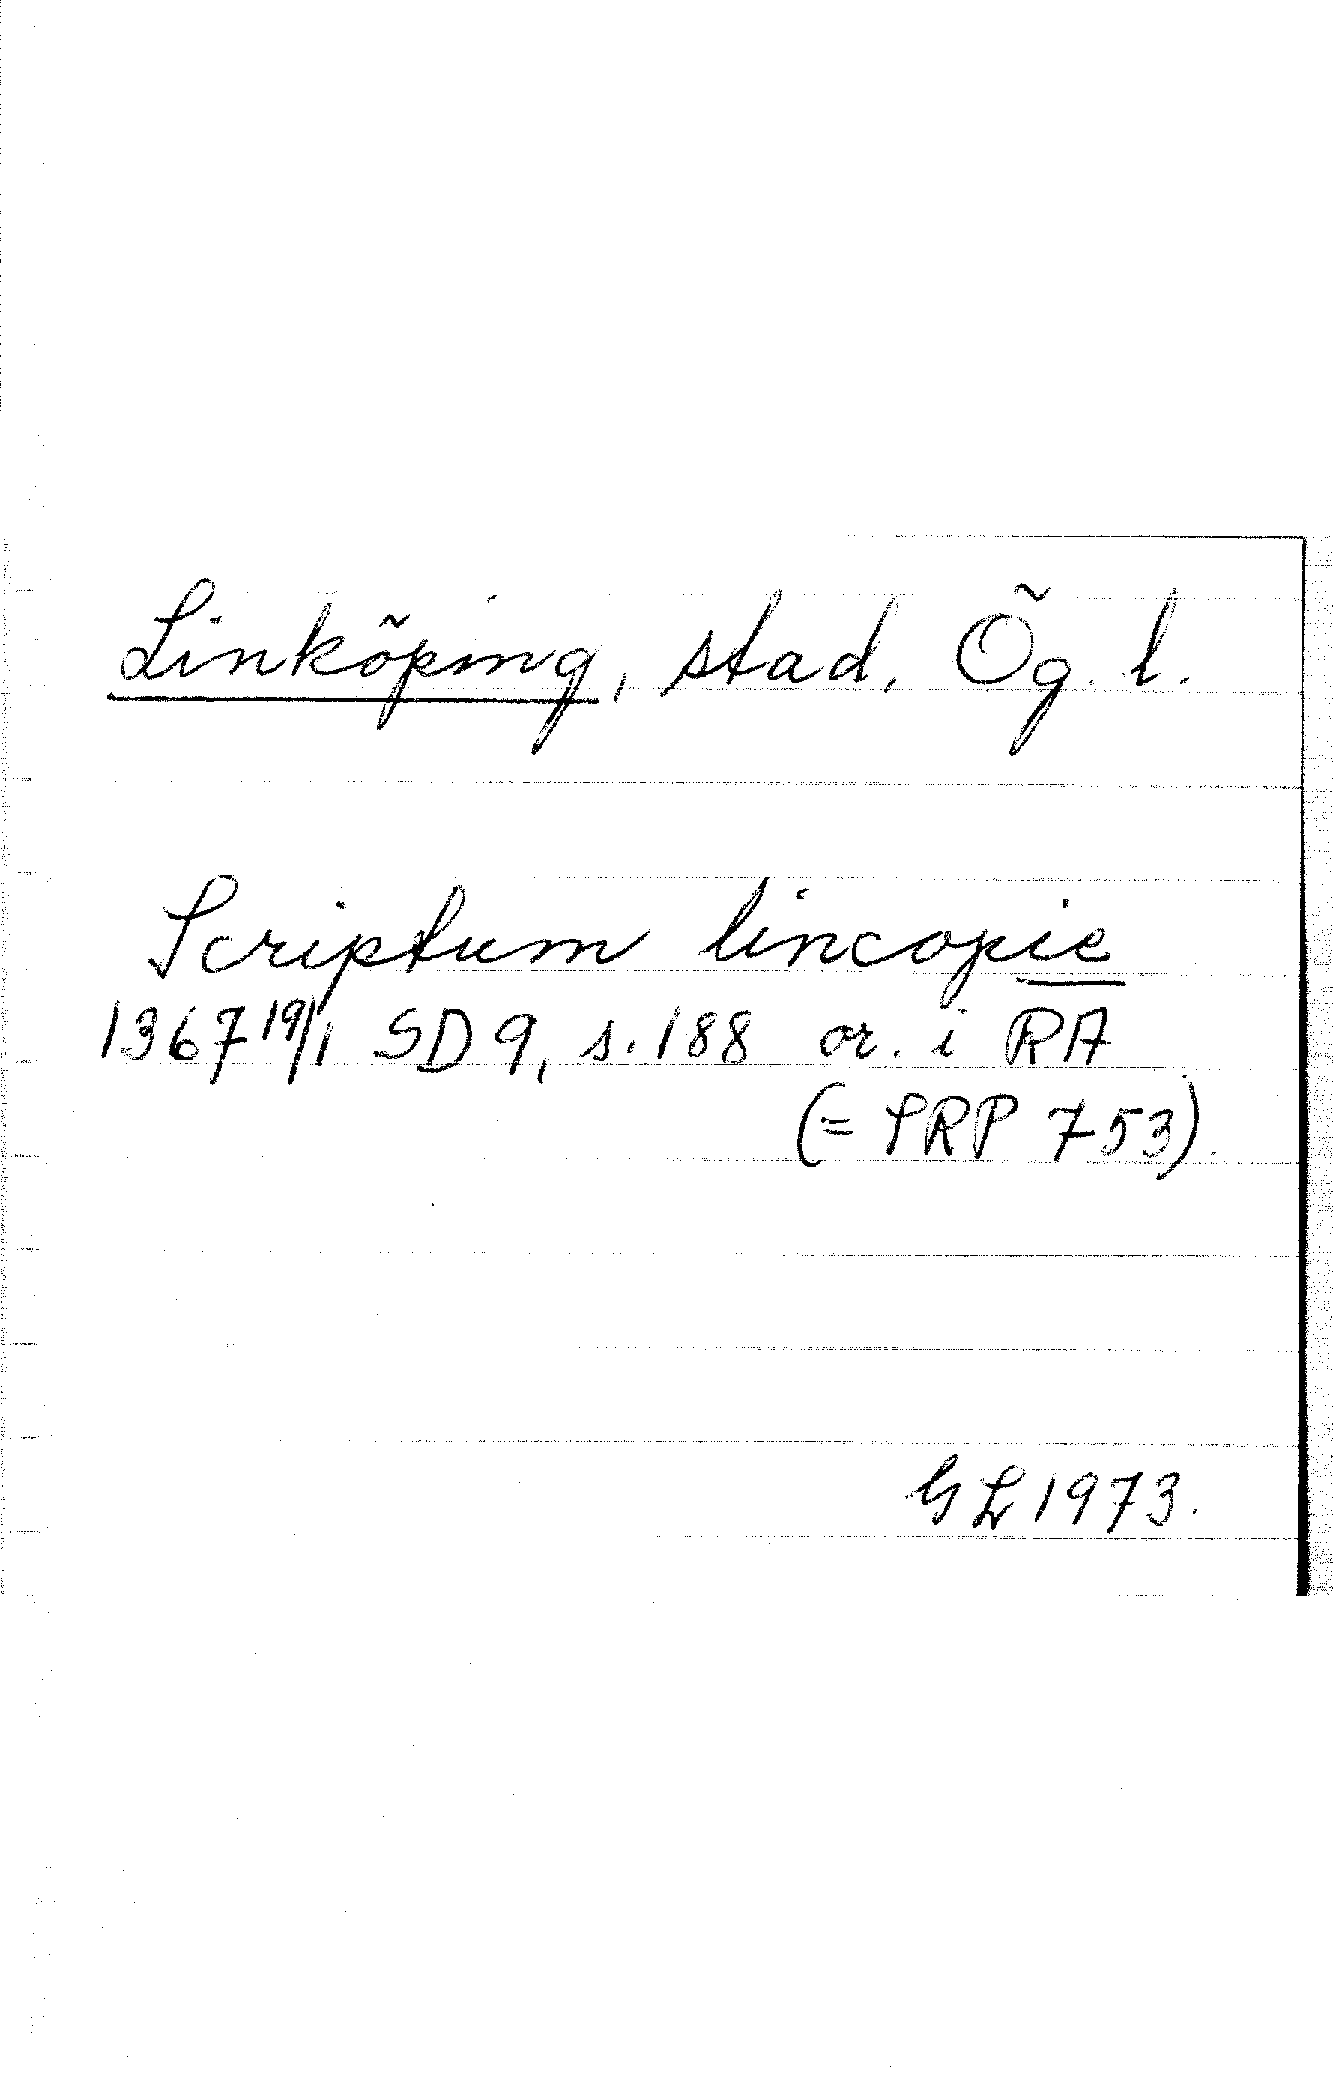 Linköping, stad, Ög. l.
Scriptum lincopie
1367 19/1 SD 9, s. 188 or. i RA
(= SRP 753).
GL 1973.